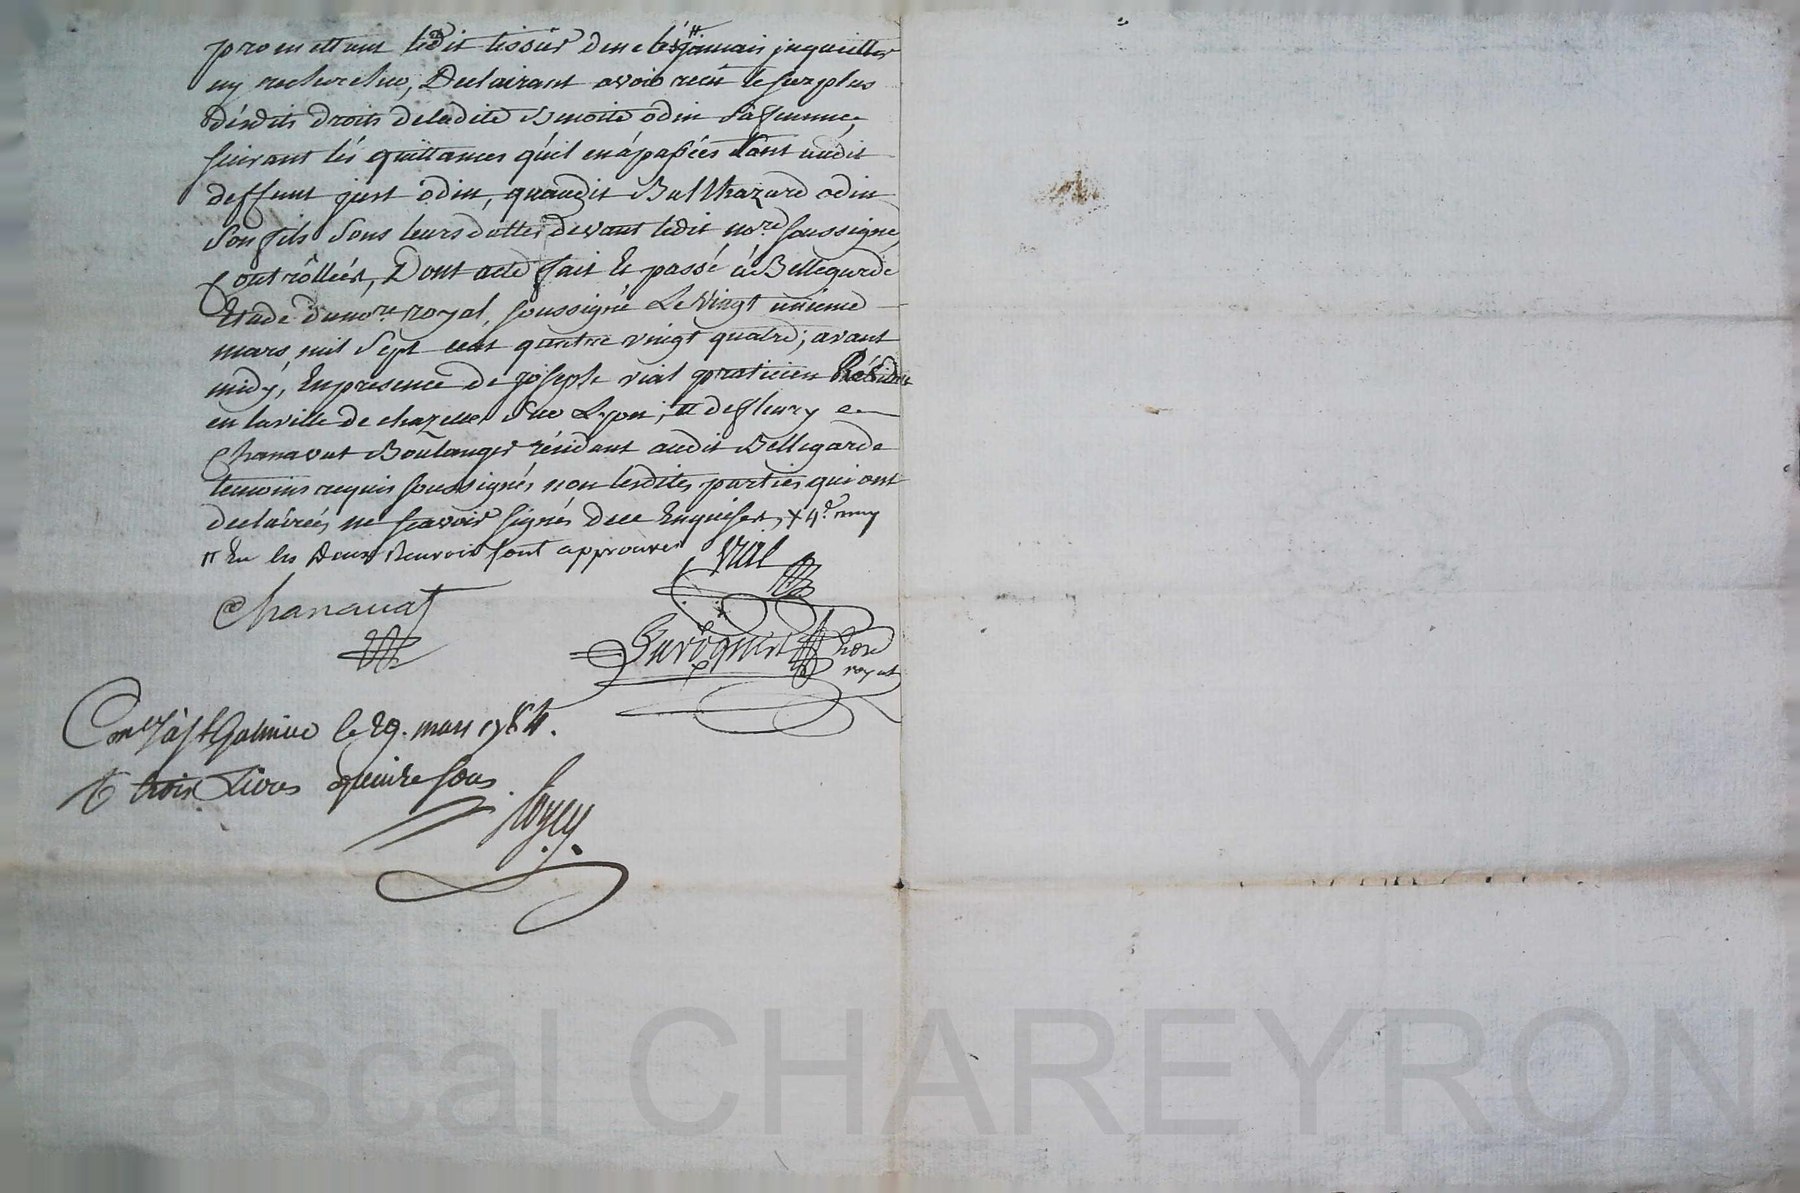 promettant ledit tissùr dene les jamais jnquietter
ny rechercher, Declairant avoir recu le surplus
désdits droits deladite Benoite odin sa femme,
suivant lés quittances qu'il en à passées tant audit
deffunt just odin, quaudit Balthazard odin
son fils sous leurs dattes devant ledit no.re soussigné
Controllées, Dont acte fait Et passé à Bellegarde
Etude dunore royal, soussigné Le vingt unieme
mars mil Sept cent quatre vingt quatre; avant
midy, En presence de Joseph vial praticien Résidant
en laville de chazelles sur Lyon; II de fleury
Chanavat Boulanger résidant audit Bellegarde
temoins requis soussignés non lesdites parties qui ont
declairées ne scavoir signér dece Enquises,
II Les Deux Renvois sont approuvés
Vial
Chanavat
nore
royal
Con.lé à St Galmier le 29. mars 1784.
trois Livres quinze sous